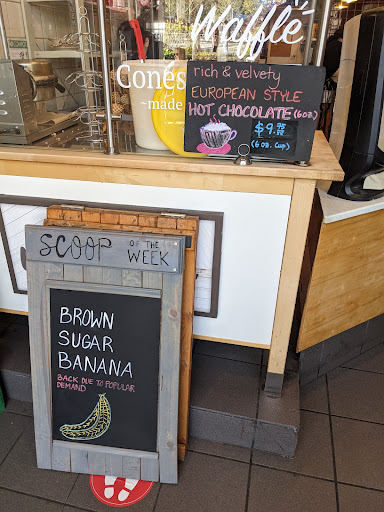 Waffle
Cones
~made
rich & velvety
EUROPEAN STYLE
HOT CHOCOLATE (6oz)
(6 oz. Cup)
SCOOP OF THE WEEK
BROWN
SUGAR
BANANA
BACK DUE TO POPULAR
DEMAND